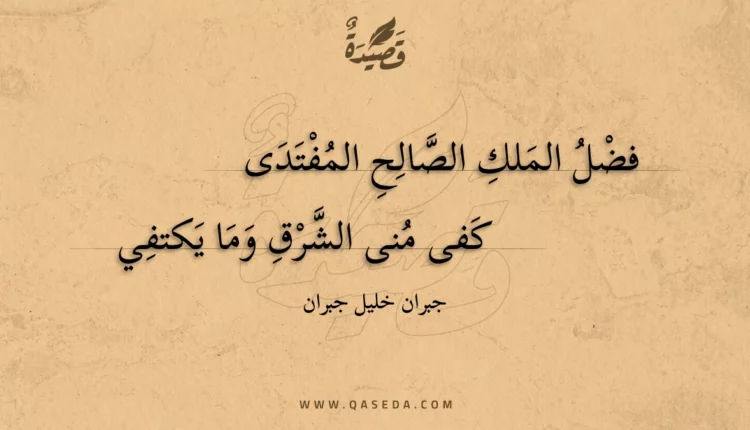 قَصِيْدَةٌ
فضْلُ المَلكِ الصَّالِحِ المُفْتَدَى
كَفى مُنى الشَّرْقِ وَمَا يَكتفِي
جبران خليل جبران
WWW.QASEDA.COM